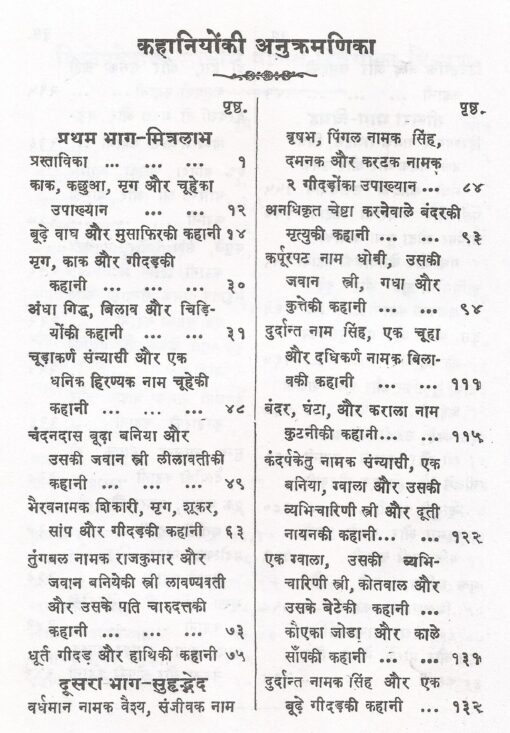 कहानियोंकी अनुक्रमणिका
पृष्ठ.
प्रथम भाग-मित्रलाभ
प्रस्ताविका ... ... ... १
काक, कछुआ, मृग और चूहेका
उपाख्यान ... ... १२
बूढ़े वाघ और मुसाफिरकी कहानी १४
मृग, काक और गीदड़की
कहानी ... ... ... ३०
अंधा गिद्ध, बिलाव और चिड़ि-
योंकी कहानी ... ... ३१
चूड़ाकर्ण संन्यासी और एक
धनिक हिरण्यक नाम चूहेकी
कहानी ... ... ... ४८
चंदनदास बूढ़ा बनिया और
उसकी जवान स्त्री लीलावतीकी
कहानी ... ... ... ४९
भैरवनामक शिकारी, मृग, शूकर,
सांप और गीदड़की कहानी . ६३
तुंगबल नामक राजकुमार और
जवान बनियेकी स्त्री लावण्यवती
और उसके पति चारुदत्तकी
कहानी ... ... ... ७३
धूर्त गीदड़ और हाथिकी कहानी ७५
दूसरा भाग-सुहृद्भेद
वर्धमान नामक वैश्य, संजीवक नाम
पृष्ठ.
वृषभ, पिंगल नामक सिंह,
दमनक और करटक नामक
२ गीदड़ोंका उपाख्यान ... ८४
अनधिकृत चेष्टा करनेवाले बंदरकी
मृत्युकी कहानी ... ... ९३
कर्पूरपट नाम धोबी, उसकी
जवान स्त्री, गधा और
कुत्तेकी कहानी ... ... ९४
दुर्दान्त नाम सिंह, एक चूहा
और दधिकर्ण नामक बिला-
वकी कहानी ... ... १११
बंदर, घंटा, और कराला नाम
कुटनीकी कहानी... ... ११५
कंदर्पकेतु नामक संन्यासी, एक
बनिया, ग्वाला और उसकी
व्यभिचारिणी स्त्री और दूती
नायनकी कहानी... ... १२२
एक ग्वाला, उसकी व्यभि-
चारिणी स्त्री, कोतवाल और
उसके बेटेकी कहानी ...
कौएका जोड़ा और काले
साँपकी कहानी ... ... १३१
दुर्दान्त नामक सिंह और एक
बूढ़े गीदड़की कहानी ... १३२